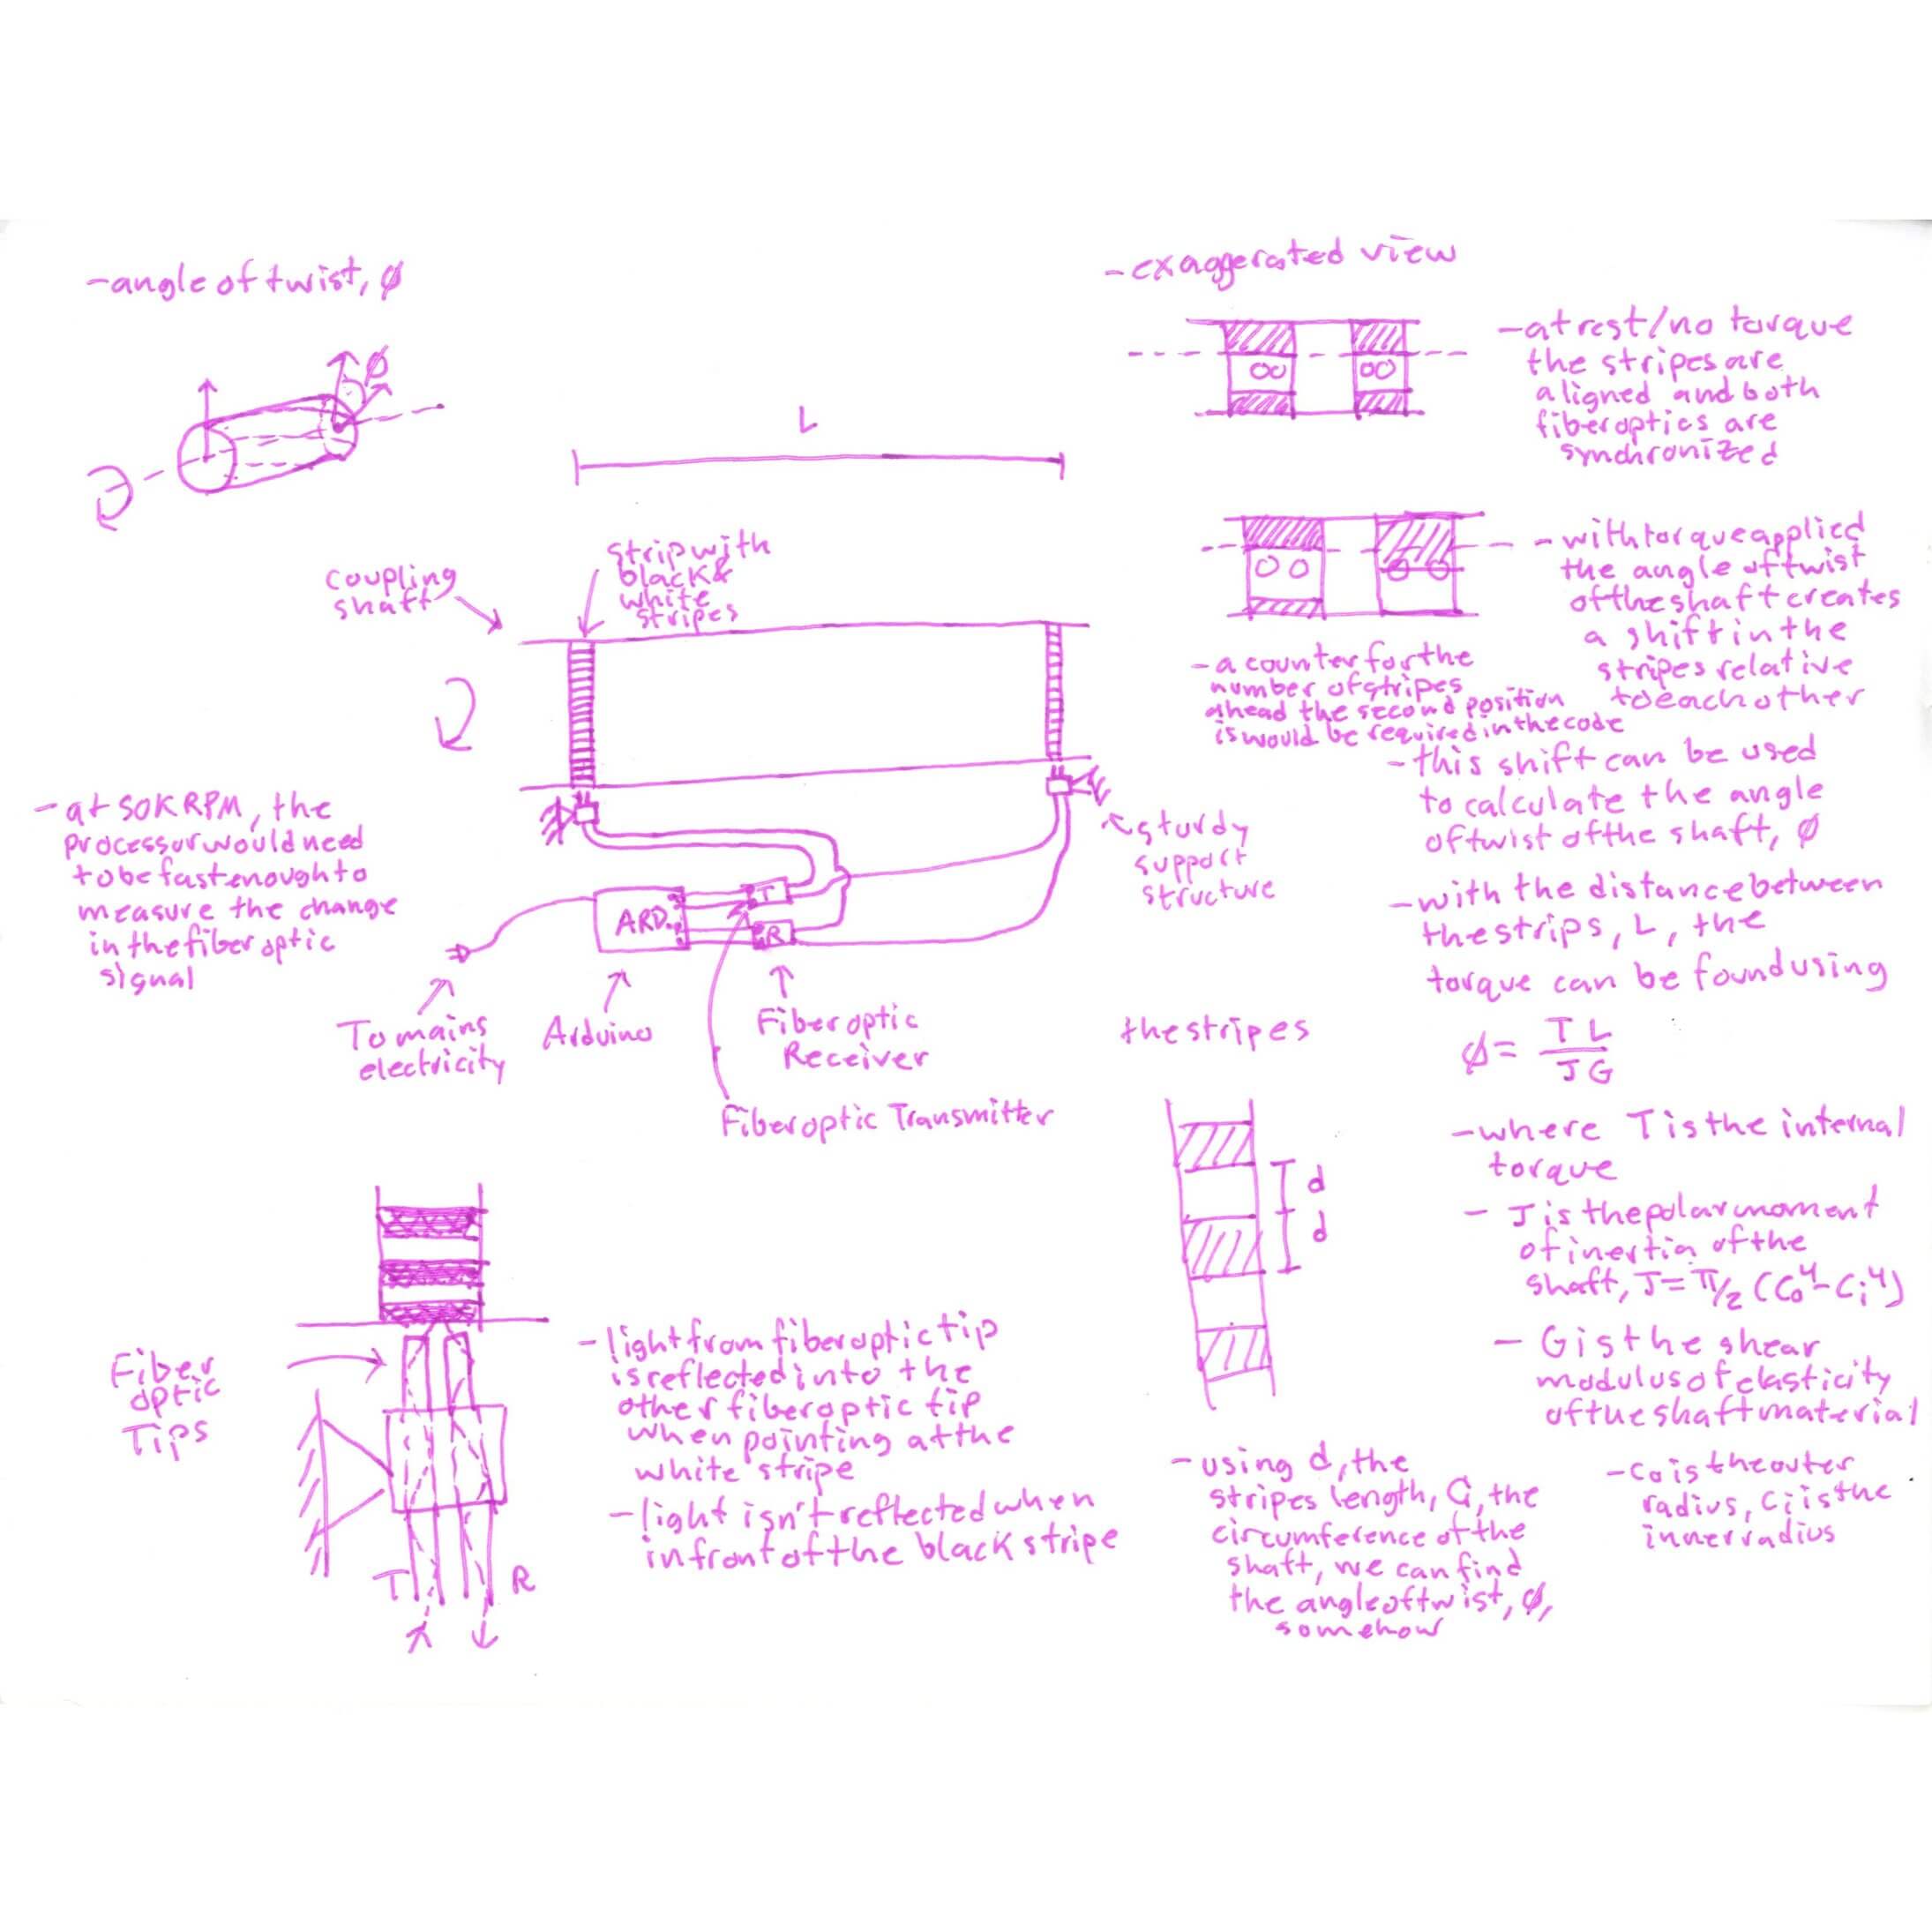 -angle of twist, ϕ
ϕ
L
coupling
shaft
strip with
black &
white
stripes
-at 50K RPM, the
processor would need
to be fast enough to
measure the change
in the fiber optic
signal
ARD.
T
R
sturdy
support
structure
To mains
electricity
Arduino
Fiber optic
Receiver
Fiber optic Transmitter
Fiber
optic
Tips
T
R
-light from fiber optic tip
is reflected into the
other fiber optic tip
when pointing at the
white stripe
-light isn't reflected when
in front of the black stripe
-exaggerated view
-at rest/no torque
the stripes are
aligned and both
fiber optics are
synchronized
-with torque applied
the angle of twist
of the shaft creates
a shift in the
stripes relative
to each other
-a counter for the
number of stripes
ahead the second position
is would be required in the code
-this shift can be used
to calculate the angle
of twist of the shaft, ϕ
-with the distance between
the strips, L, the
torque can be found using
ϕ = TL/JG
-where T is the internal
torque
- J is the polar moment
of inertia of the
shaft, J=π/2 (Co⁴-Ci⁴)
- G is the shear
modulus of elasticity
of the shaft material
-Co is the outer
radius, Ci is the
inner radius
the stripes
d
d
-using d, the
stripes length, C, the
circumference of the
shaft, we can find
the angle of twist, ϕ,
somehow